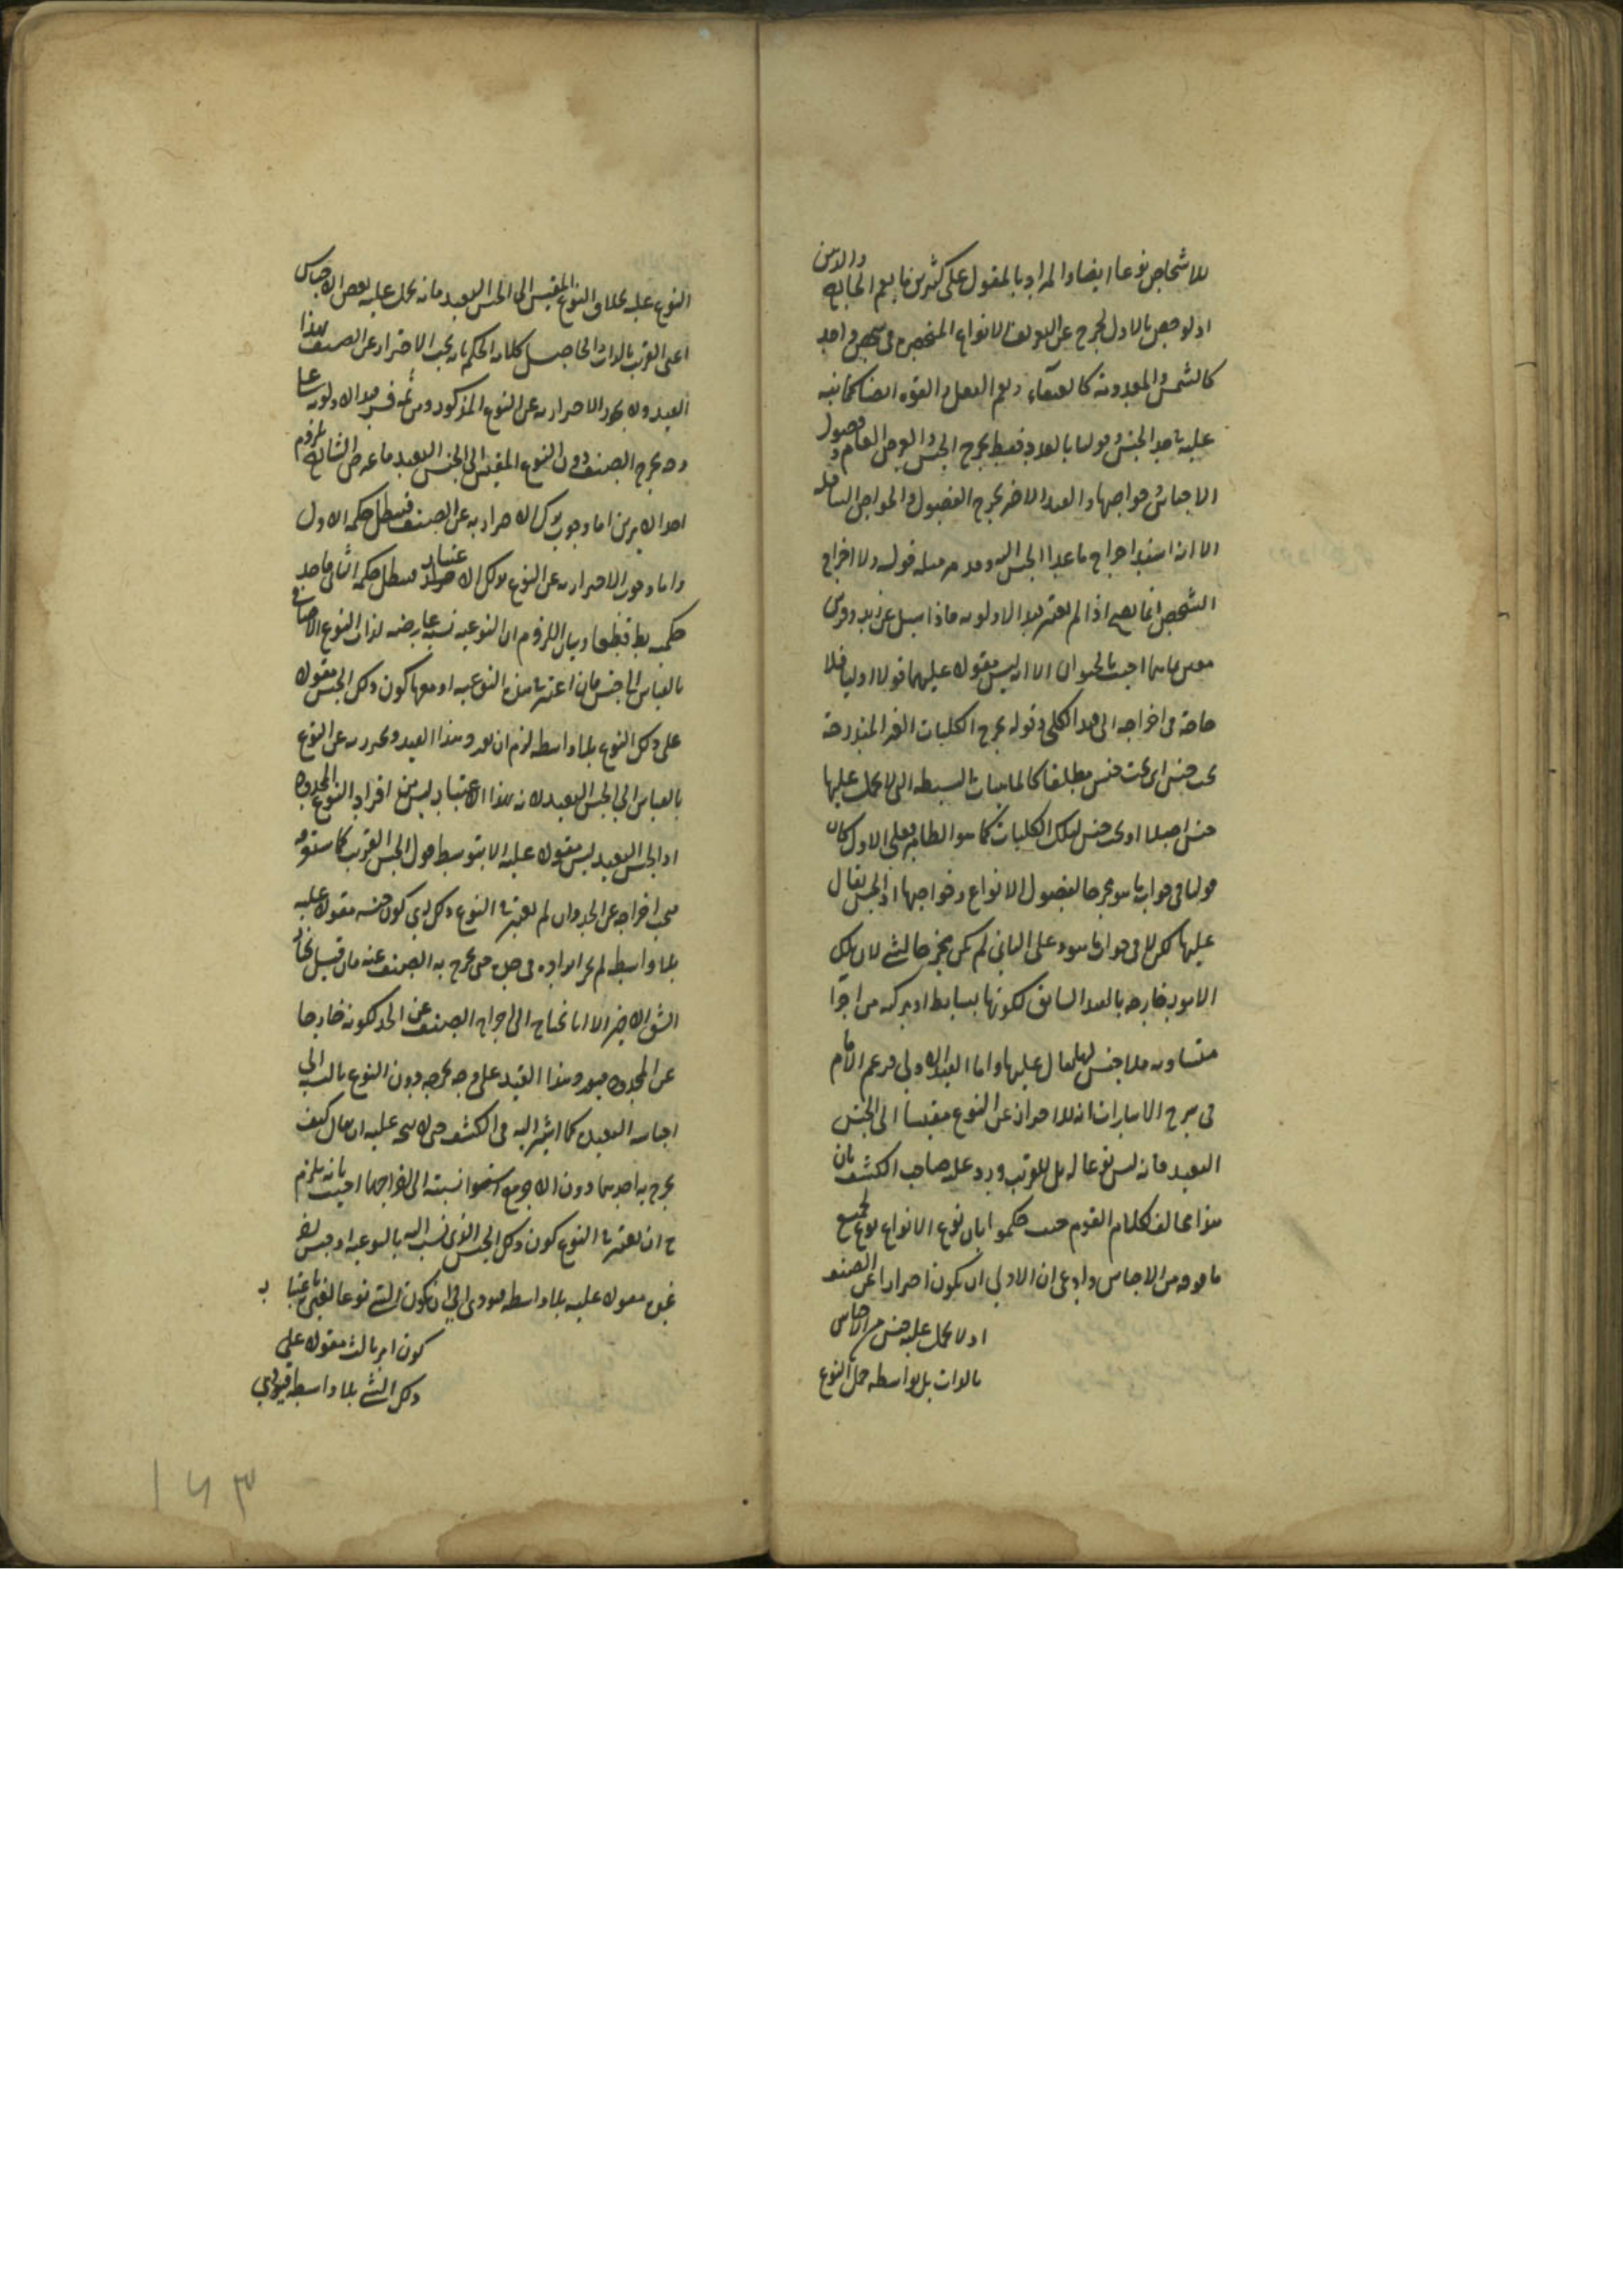 للاشخاص نوعا ايضا والمراد بالمقول على كثيرين ما يعم الخارج والذهن
اذ لو خص بالاول لخرج عن التعريف الانواع المنحصرة في شخص واحد
كالشمس والمعدومة كالعنقاء ويعم الفعل والقوة ايضا كما نبه
عليه في حد الجنس وقولنا بالعدد فقط يخرج الجنس والعرض العام وفصول
الاجناس وخواصها والقيد الاخر يخرج الفصول والخواص السافلة
الا انه اسند اخراج ما عدا الجنس اليه وقد مر مثله قوله ولا اخراج
الشخص انما يصح اذا لم يعتبر قيد الاولوية فاذا سئل عن زيد وفرس
معين ما هما اجيب بالحيوان الا انه ليس مقولا عليهما قولا اوليا فلا
حاجة في اخراجه الى قيد الكلي وقوله يخرج الكليات الغير المندرجة
تحت جنس اى تحت جنس مطلقا كالماهيات البسيطة التي لا يحمل عليها
جنس اصلا او تحت جنس لتلك الكليات كما هو الظاهر فعلى الاول كان
قولنا في جواب ما هو مخرجا لفصول الانواع وخواصها اذ الجنس يقال
عليها لكن لا في جواب ما هو وعلى الثاني لم يكن مخرجا لشئ لان تلك
الامور خارجة بالقيد السابق لكونها بسايط او مركبة من اجزا
متساوية فلا جنس لها يقال عليها واما القيد الاولى فزعم الامام
في شرح الاشارات انه للاحتراز عن النوع مقيسا الى الجنس
البعيد فانه ليس نوعا له بل للقريب ورد عليه صاحب الكشف بان
هذا مخالف لكلام القوم حيث حكموا بان نوع الانواع نوع لجميع
ما فوقه من الاجناس وادعى ان الاولى ان يكون احترازا عن الصنف
اذ لا يحمل عليه جنس من الاجناس
بالذات بل بواسطة حمل النوع
النوع عليه بخلاف النوع المقيس الى الجنس البعيد فانه يحمل عليه بعض الاجناس
اعني القريب بالذات والحاصل كلامه الحكم بانه يجب الاحتراز عن الصنف بهذا
القيد ولا يجوز الاحتراز به عن النوع المذكور ومن ثمه فسر قيد الاولوية بما
وجه يخرج الصنف دون النوع المقيس الى الجنس البعيد فاعترض الشارح بلزوم
احد الامرين اما وجوب ترك الاحتراز به عن الصنف فيبطل حكمه الاول
واما وجوب الاحتراز به عن النوع بذلك الاعتبار فيبطل حكمه الثاني فاحد
حكميه بط قطعا وبيان اللزوم ان النوعية نسبة عارضة لذات النوع الاضافي
بالقياس الى جنس فان اعتبر في هذه النوعية او معها كون ذلك الجنس مقولا
على ذلك النوع بلا واسطة لزم ان يورد هذا القيد ويحترز به عن النوع
بالقياس الى الجنس البعيد لانه بهذا الاعتبار ليس من افراد النوع المحدود
اذ الجنس البعيد ليس مقولا عليه الا بتوسط حمل الجنس القريب كما ستعرفه
فيجب اخراجه عن الحد وان لم يعتبر في النوع ذلك اي كون جنسه مقولا عليه
بلا واسطة لم يجز ايراده في حده حتى يخرج به الصنف عنه فان قيل نختار
الشق الاخير الا انا نحتاج الى اخراج الصنف عن الحد لكونه خارجا
عن المحدود فيورد هذا القيد على وجه يخرجه دون النوع بالنسبة الى
اجناسه البعيدة كما اشير اليه في الكشف حتى لا يتجه عليه ان يقال كيف
يخرج به احدهما دون الاخر مع استوا نسبته الى اخراجهما اجيب بانه يلزم
ح ان يعتبر في النوع كون ذلك الجنس الذي نسب اليه بالنوعية او جنس اخر
غيره مقولا عليه بلا واسطة فيؤدى الى ان يكون الشئ نوعا لغيره باعتبار
كون امر ثالث مقولا على
ذلك الشئ بلا واسطة فيؤدي
١٤٣